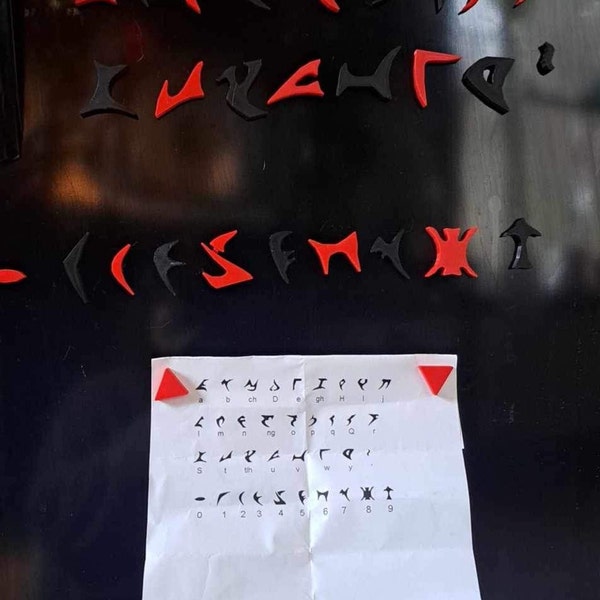 a b ch D e gh H I j
        
l m n ng o p q Q r
       
S t tlh u v w y '
         
0 1 2 3 4 5 6 7 8 9